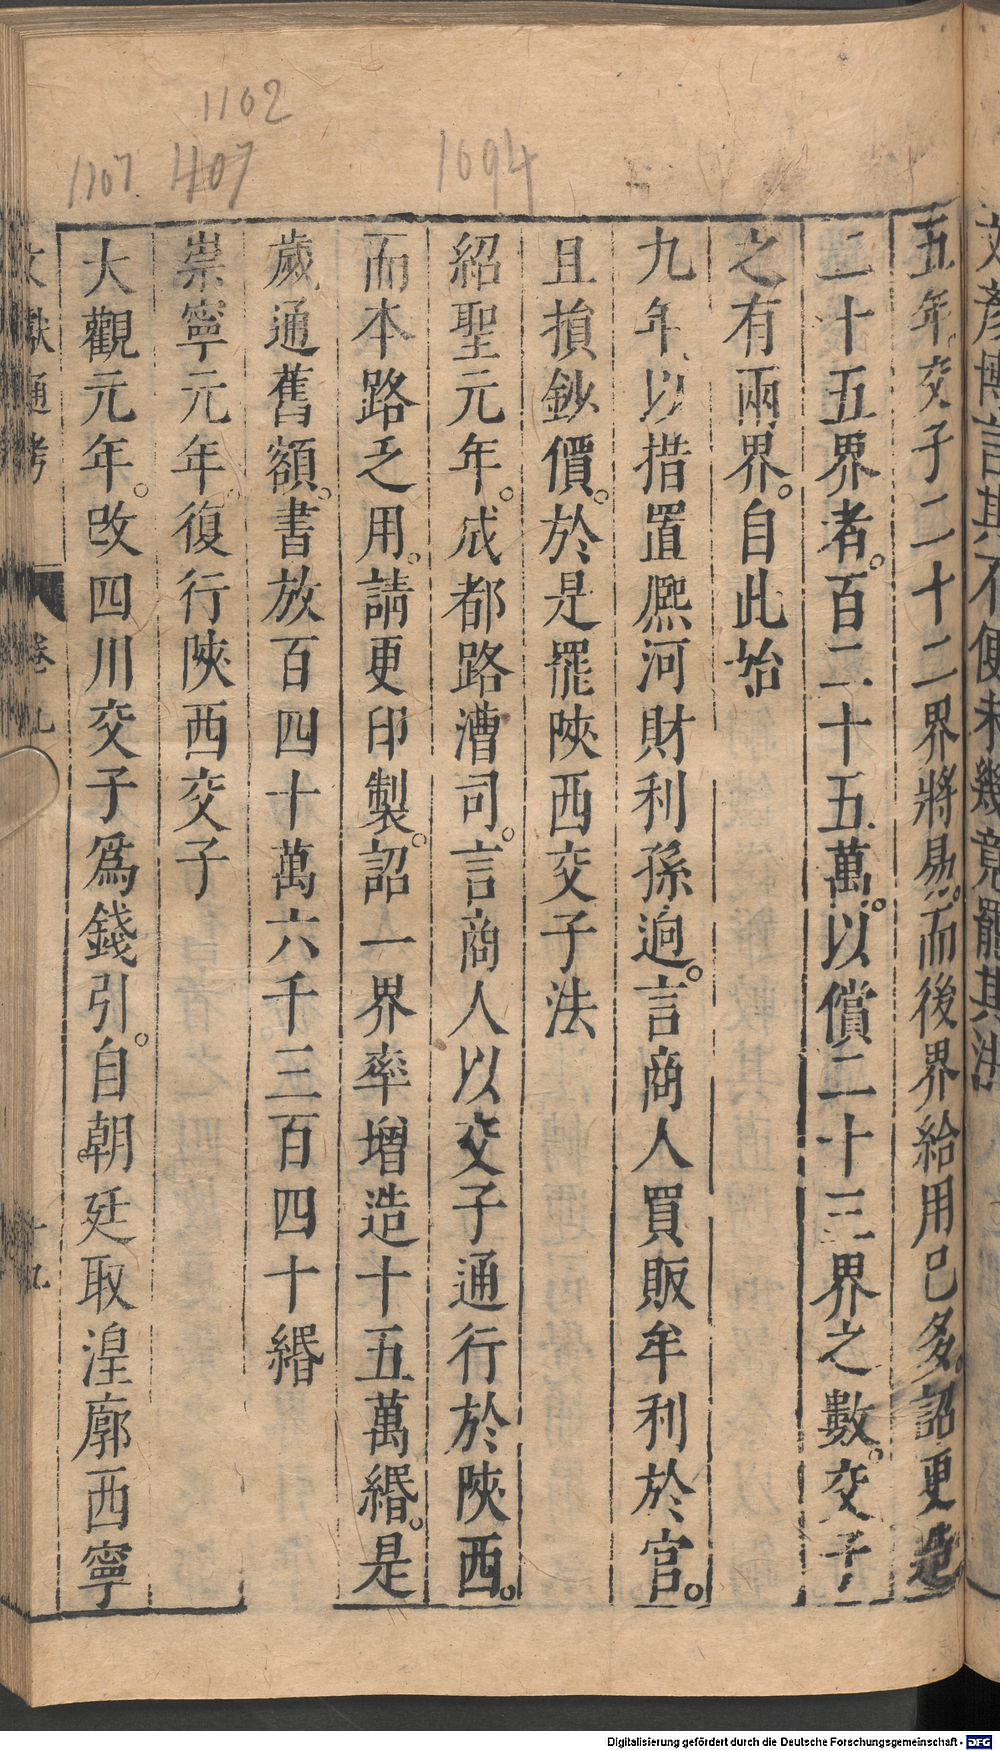 1102
1107
1107
1094
五年。交子二十二界將易。而後界給用已多。詔更造
二十五界者。百二十五萬。以償二十三界之數。交子
之有兩界。自此始
九年。以措置熈河財利孫迥。言商人買販牟利於官。
且損鈔價。於是罷陝西交子法
紹聖元年。成都路漕司。言商人以交子通行於陝西。
而本路乏用。請更印製。詔一界率增造十五萬緡。是
歲通舊額。書放百四十萬六千三百四十緡
崇寧元年。復行陝西交子
大觀元年。改四川交子爲錢引。自朝廷取湟廓西寧
文獻通考
卷九
十九
Digitalisierung gefördert durch die Deutsche Forschungsgemeinschaft - DFG